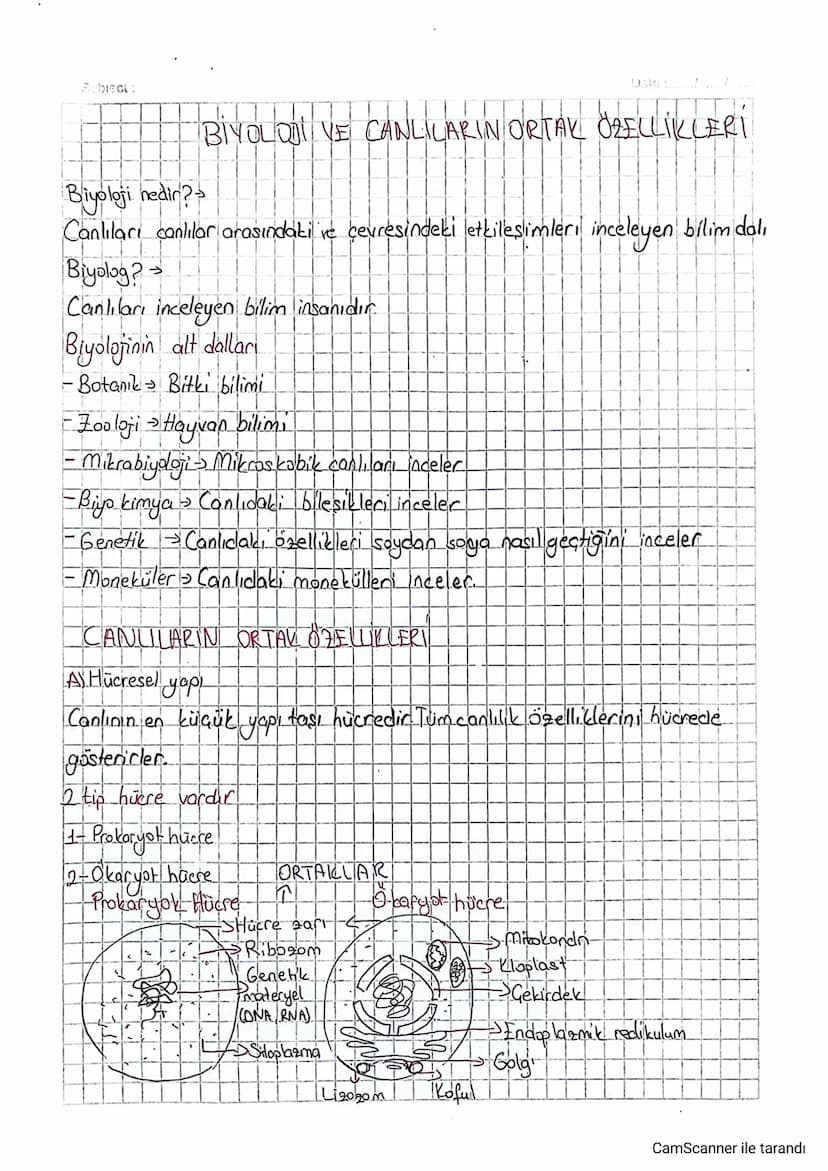 Subject :
Date : .../.../...
BİYOLOJİ VE CANLILARIN ORTAK ÖZELLİKLERİ
Biyoloji nedir?→
Canlıları canlılar arasındaki ve çevresindeki etkileşimleri inceleyen bilim dalı
Biyolog?→
Canlıları inceleyen bilim insanıdır
Biyolojinin alt dalları
- Botanik → Bitki bilimi
- Zooloji → Hayvan bilimi
- Mikrabiyoloji → Mikroskobik canlıları inceler
- Biyo kimya → Canlıdaki bileşikleri inceler
- Genetik → Canlıdaki özellikleri soydan soya nasıl geçtiğini inceler
- Moneküler → Canlıdaki monekülleri inceler.
CANLILARIN ORTAK ÖZELLİKLERİ
A) Hücresel yapı
Canlının en küçük yapı taşı hücredir. Tüm canlılık özelliklerini hücrede
gösterirler.
2 tip hücre vardır
1- Prokaryot hücre
2- Ökaryot hücre
ORTAKLAR
Prokaryok Hücre
Ökaryot hücre
Hücre zarı
Ribozom
Genetik
materyel
(DNA, RNA)
Sitoplazma
Mitokondri
Kloplast
Çekirdek
Endoplazmik redikulum
Golgi
Lizozom
Koful
CamScanner ile tarandı